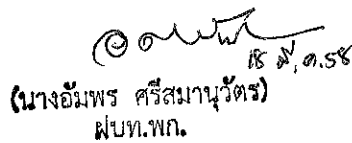 18 มี.ค.58
(นางอัมพร ศรีสมานุวัตร)
ฝบท.พก.